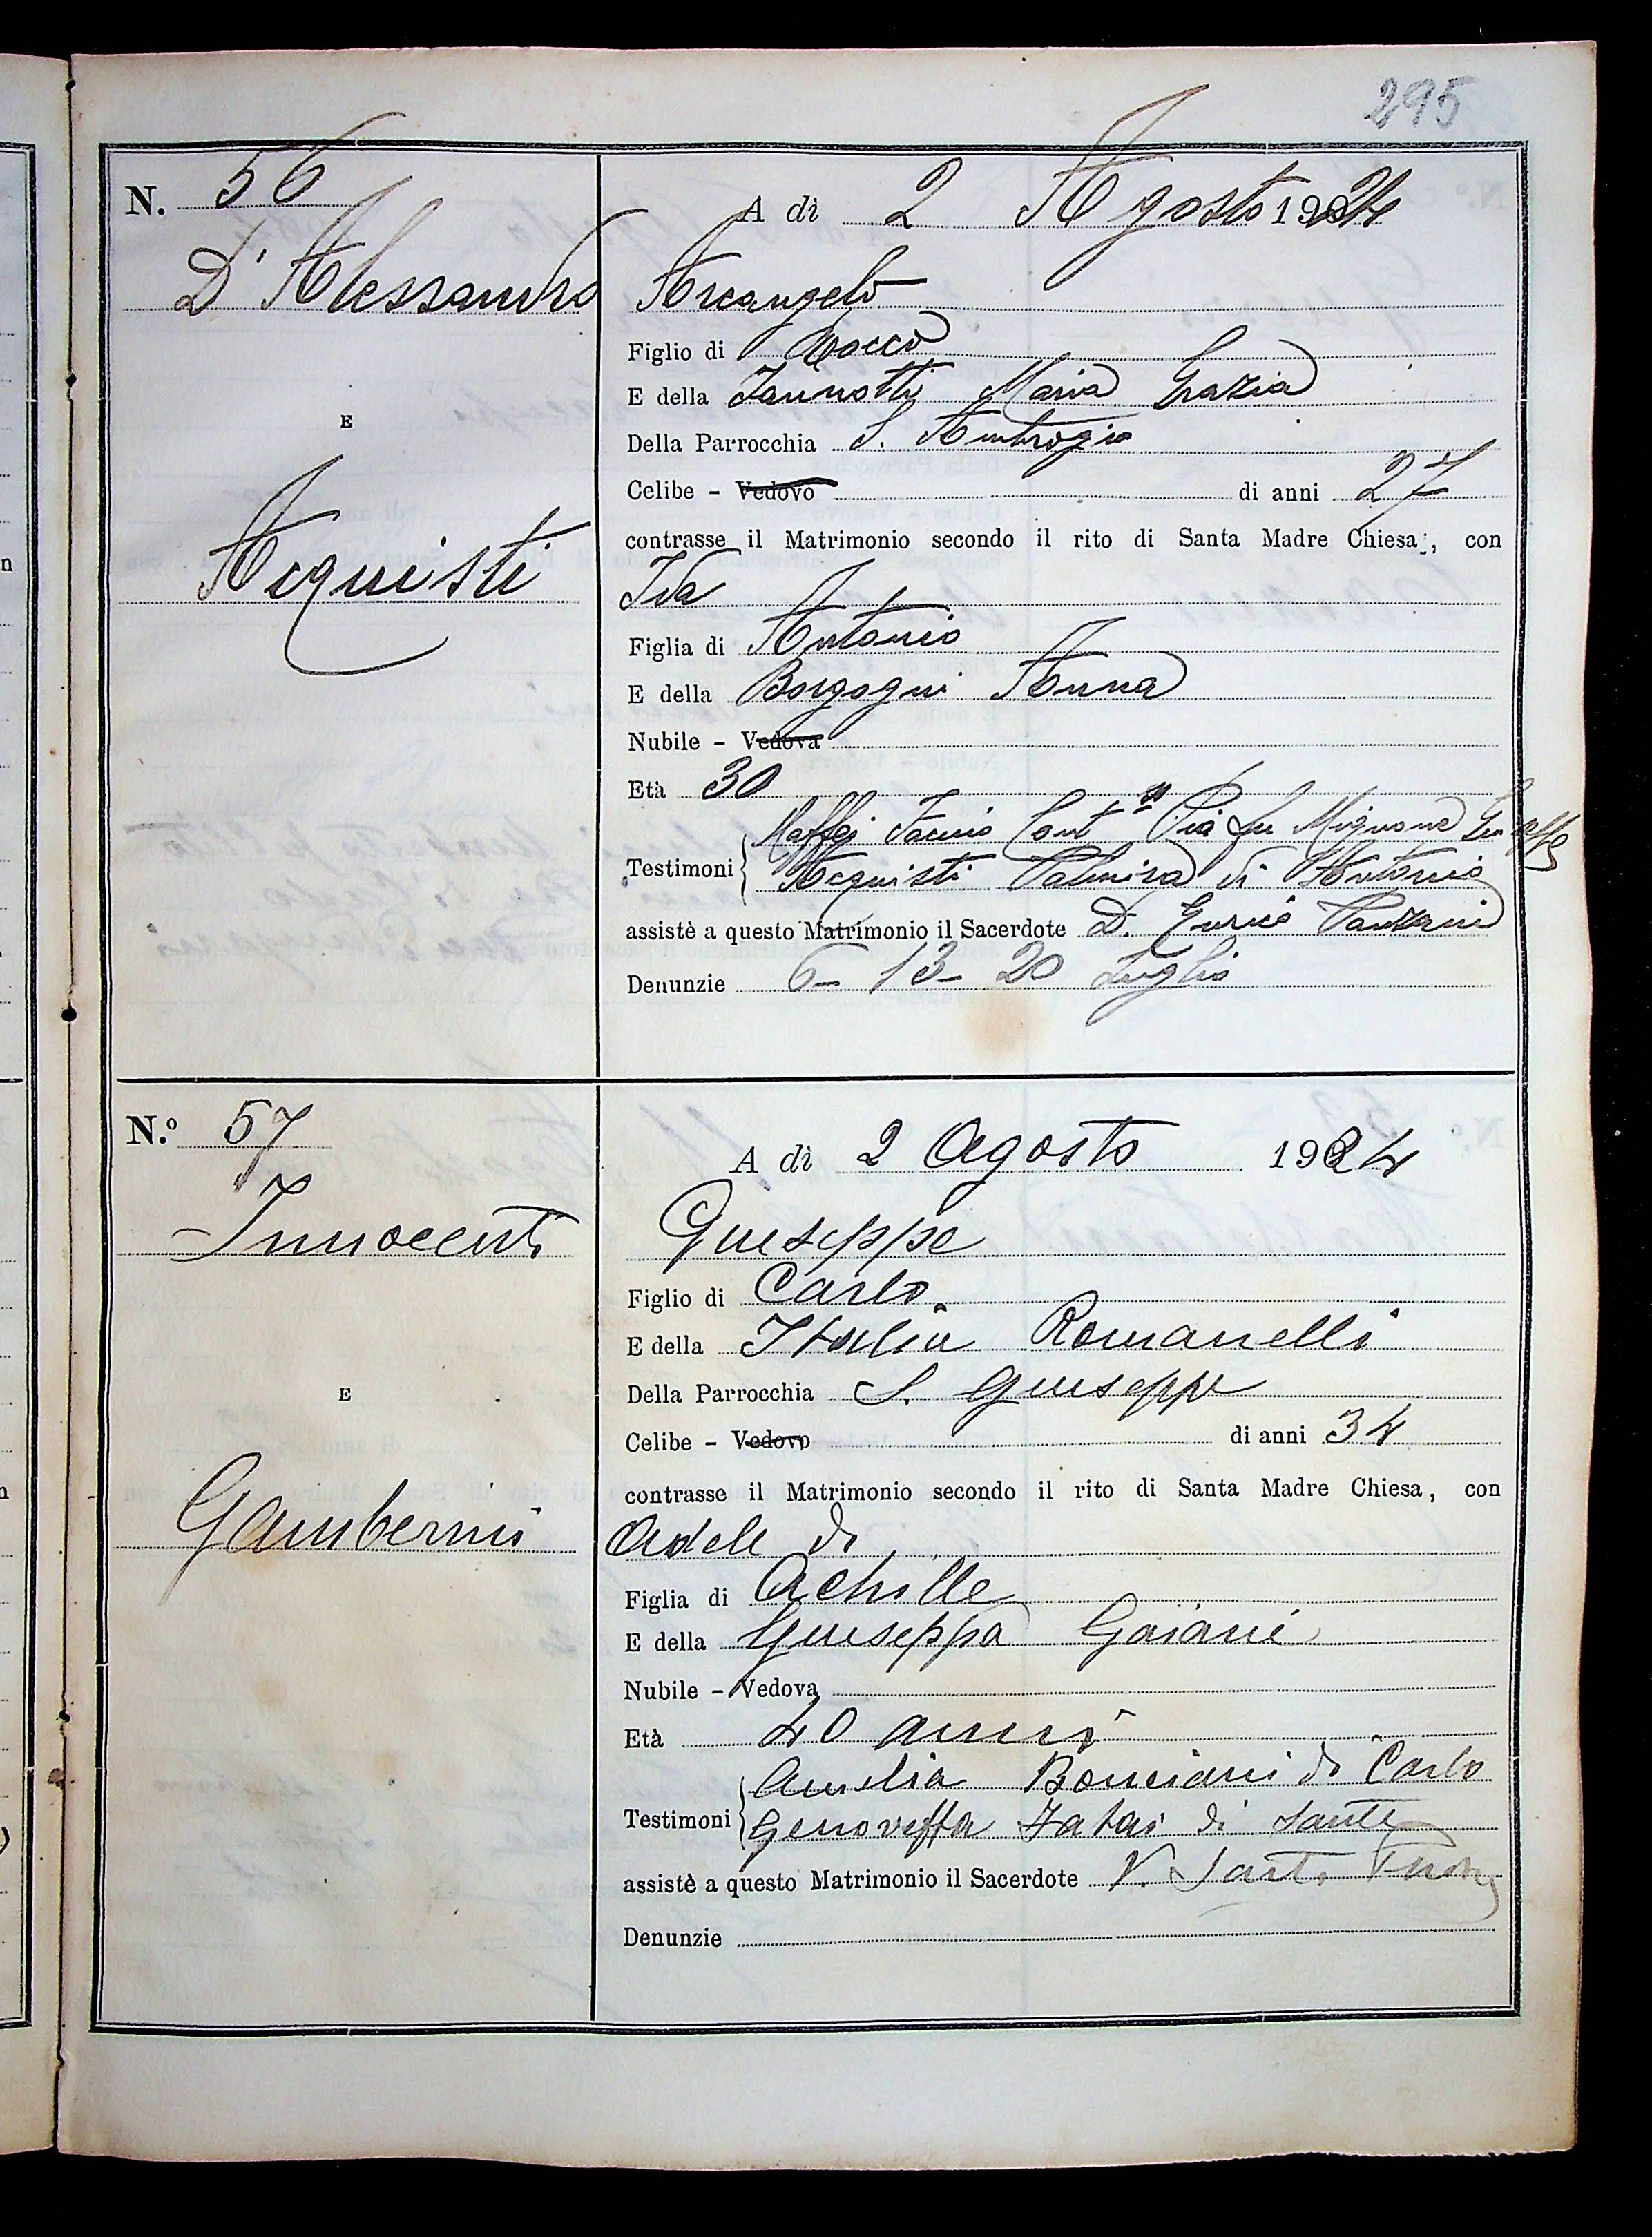 295
N. 56
A dì 2 Agosto 1924
D'Alessandro
Arcangelo
Figlio di Rocco
E della Iannotti Maria Grazia
E
Della Parrocchia S. Ambrogio
Celibe - Vedovo di anni 27
contrasse il Matrimonio secondo il rito di Santa Madre Chiesa, con
Acquisti
Ida
Figlia di Antonio
E della Borgogni Anna
Nubile - Vedova
Età 30
Maffei Cont Pia fu
Testimoni
Acquisti Palmira di Antonio
assistè a questo Matrimonio il Sacerdote D. Enrico Panzani
Denunzie 6 - 13 - 20 Luglio
N.º 57
A dì 2 Agosto 1924
Innocenti
Giuseppe
Figlio di Carlo
E della Italia Romanelli
E
Della Parrocchia S. Giuseppe
Celibe - Vedovo di anni 34
contrasse il Matrimonio secondo il rito di Santa Madre Chiesa, con
Gamberini
Adele di
Figlia di Achille
E della Giuseppa Gaiani
Nubile - Vedova
Età 40 anni
Amelia Bonciani di Carlo
Testimoni
Genoveffa di Sante
assistè a questo Matrimonio il Sacerdote
Denunzie